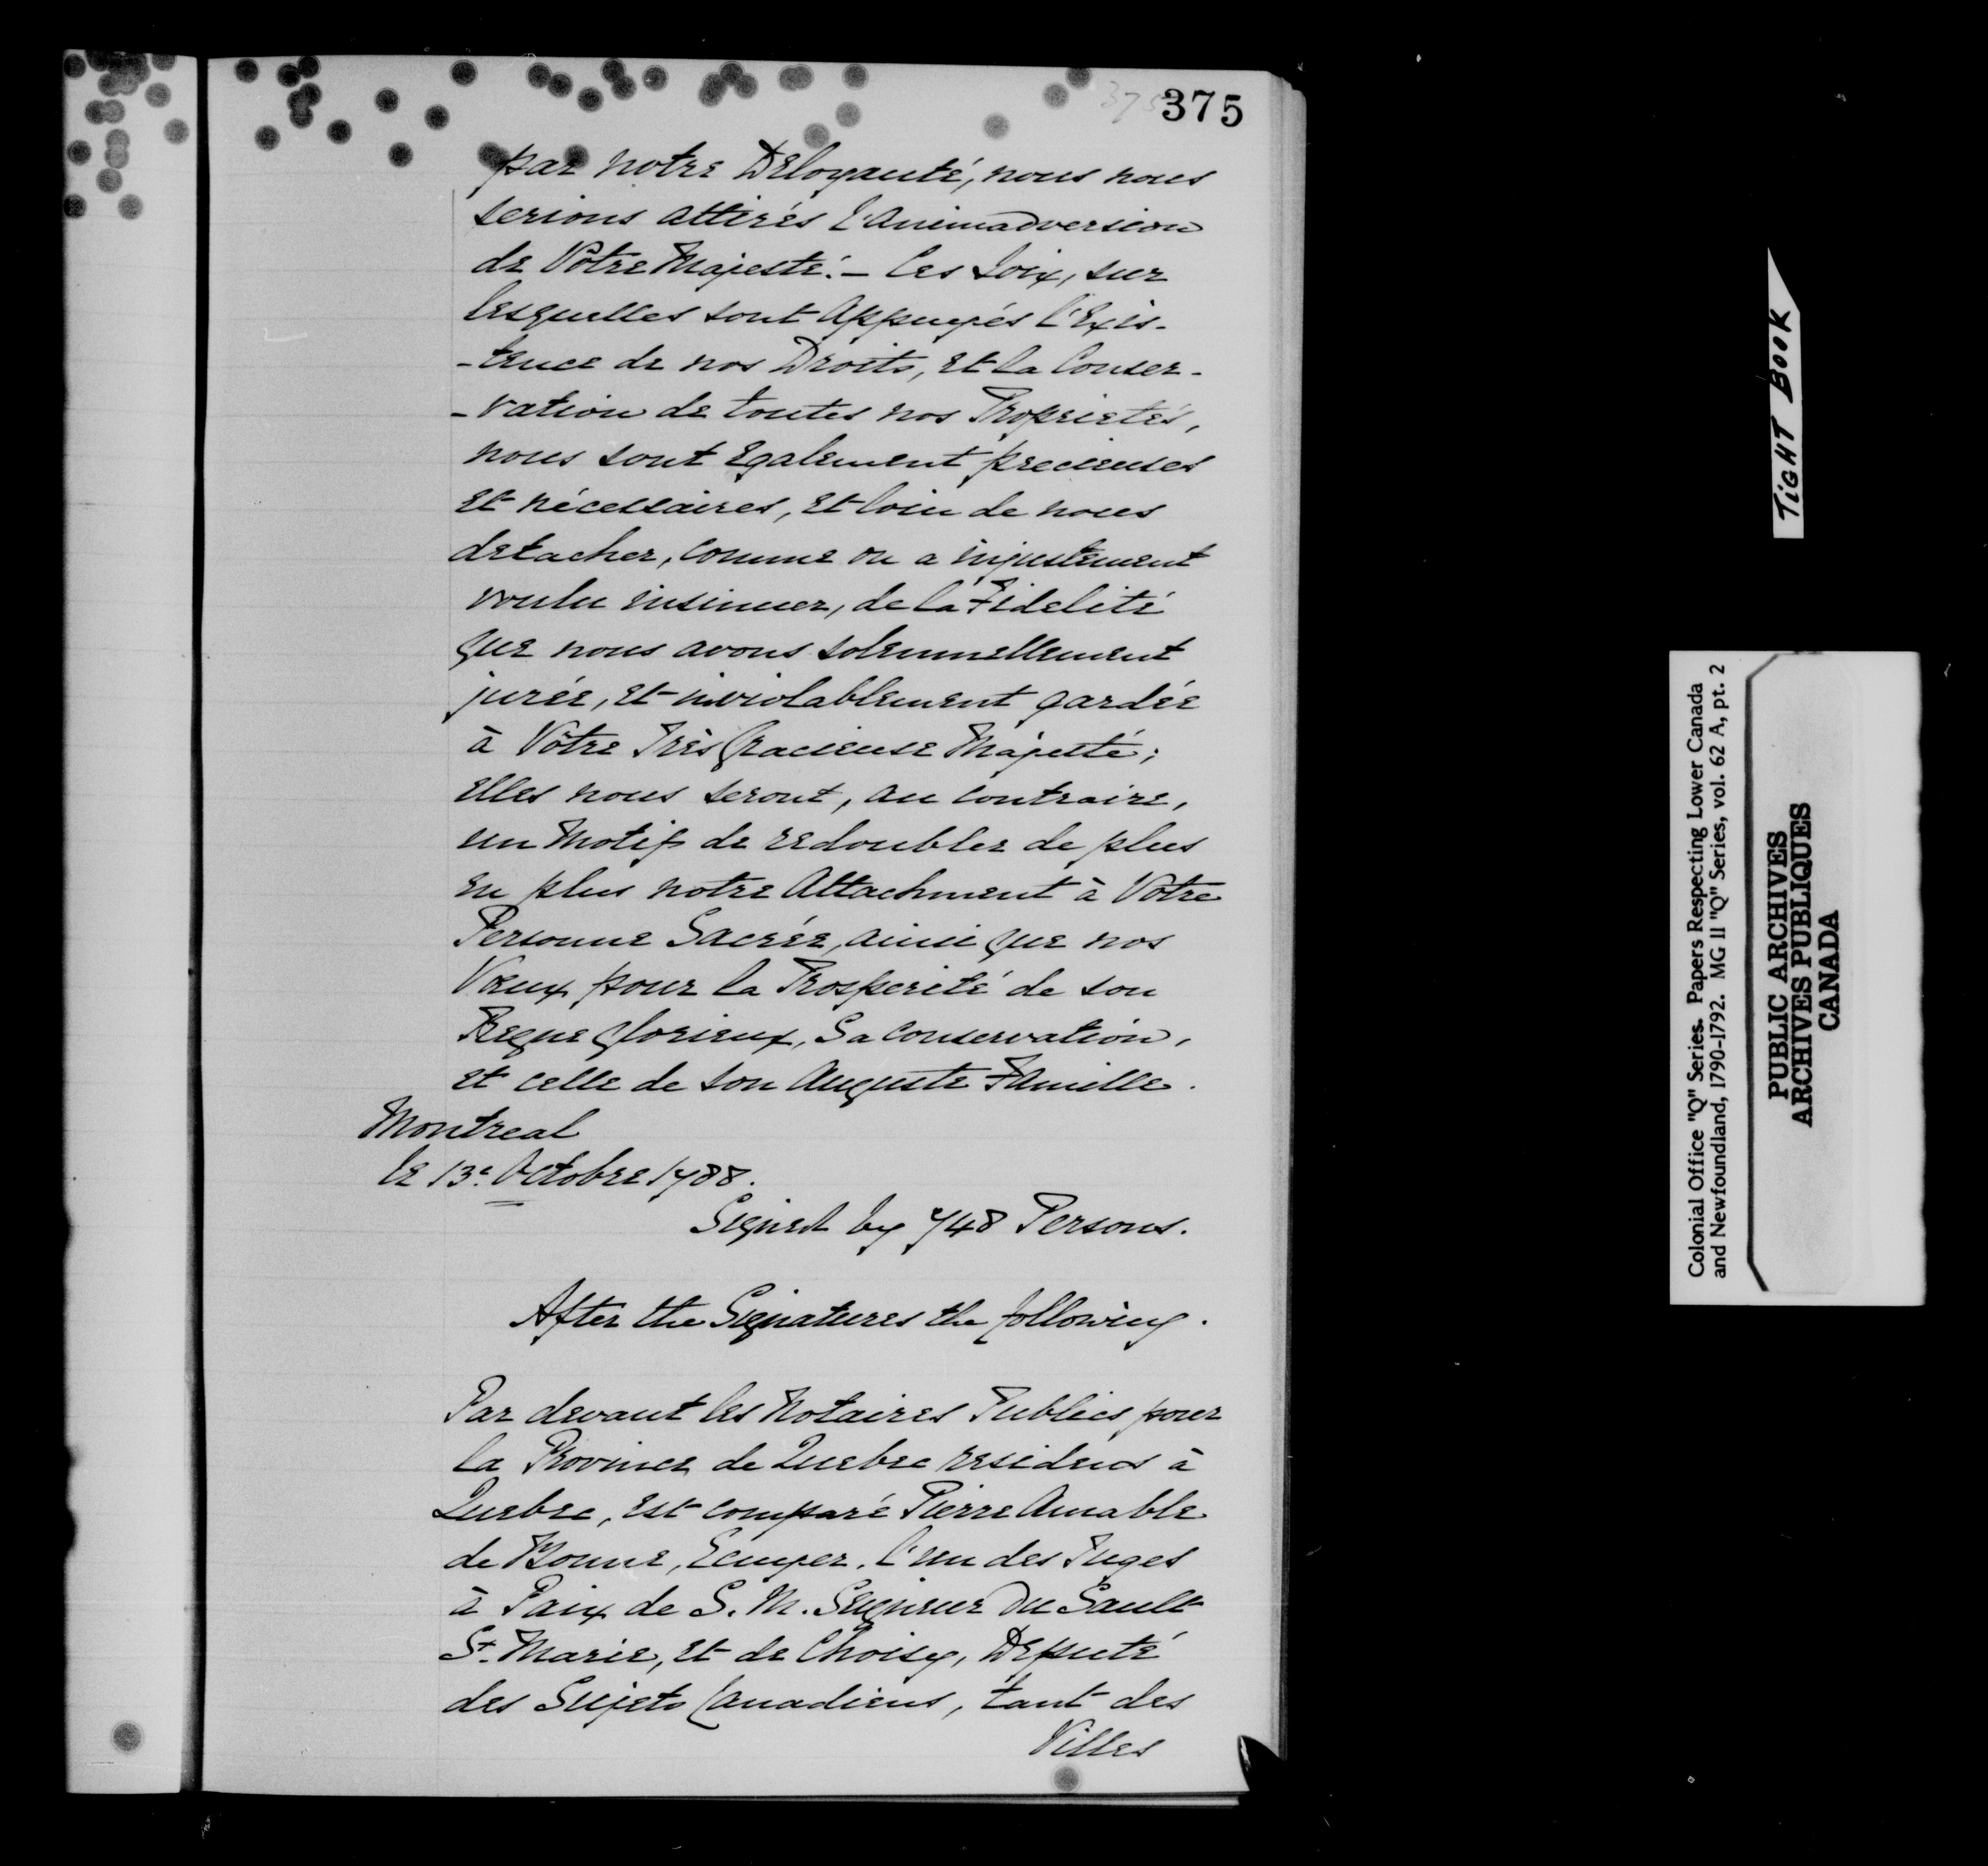 375
par notre Deloyauté, nous nous
serions attirés l'animadversion
de Votre Majesté. – Ces Loix, sur
lesquelles sont appuyés l'Exis-
-tence de nos Droits, et la Conser-
-vation de toutes nos Proprietés,
nous sont egalement precieuses
et nécessaires, et loin de nous
detacher, comme on a injustement
voulu insinuer, de la Fidelité
que nous avons solemnellement
jurée, et inviolablement gardée
à Votre Très Gracieuse Majesté;
elles nous seront, au contraire,
un Motif de redoubler de plus
en plus notre Attachment à Votre
Personne Sacrée, ainsi que nos
Vœux pour la Prosperité de son
Regne glorieux, Sa conservation,
et celle de son Auguste Famille.
Montreal
le 13e. Octobre 1788.
Signed by 748 Persons.
After the Signatures the following.
Par devant les Notaires Publics pour
la Province de Quebec residens à
Quebec, est comparé Pierre Amable
de Bonne, Ecuyer, l'un des Juges
à Paix de S. M. Seigneur du Sault
St. Marie, et de Choisy, Deputé
des Sujets Canadiens, tant des
Villes
TIGHT BOOK
Colonial Office "Q" Series. Papers Respecting Lower Canada
and Newfoundland, 1790-1792. MG 11 "Q" Series, vol. 62 A, pt. 2
PUBLIC ARCHIVES
ARCHIVES PUBLIQUES
CANADA